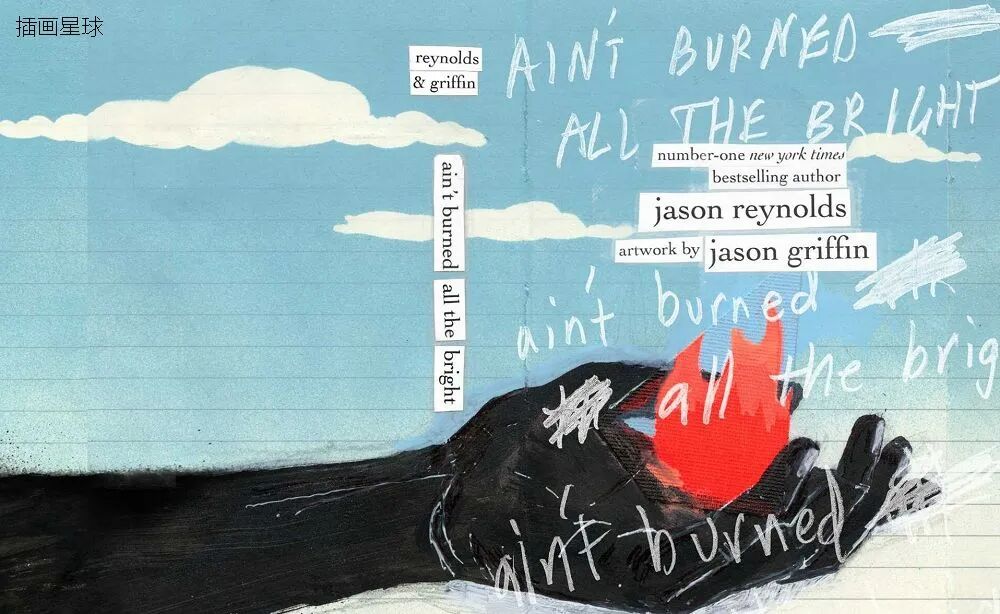 插画星球
reynolds
& griffin
ain't burned all the bright
AIN'T BURNED
ALL THE BRIGHT
number-one new york times
bestselling author
jason reynolds
artwork by jason griffin
ain't burned
all the brig
ain't burned